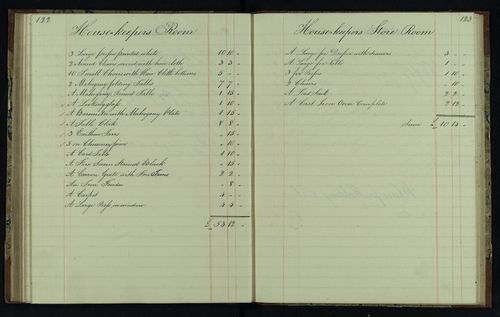 122
House-keepers Room
3 Large presses painted white 10 10 -
2 Arm'd Chairs covered with hair cloth 3 3 -
10 Small Chairs with Hair Cloth bottoms 5 - -
2 Mahogany folding Tables 7 7 -
A Mahogany Round Table 1 15 -
A Looking glass 1 10 -
A Barometer with Mahogany 1 15 -
A Table Clock 8 8 -
3 Earthen Jars - 15 -
on Chimney piece 1 10 -
A Card Table 1 10 -
A Fire Screen Stained Black - 15 -
A Carron Grate with Iron 2 2 -
An Iron Fender - 8 -
A Carpet 4 - -
A Large Press in window 4 4 -
£ 12 -
123
House-keepers Store Room
A Large Dresser with drawers 3 - -
A Large Table 1 - -
3 1 10 -
2 Chairs - 10 -
A 2 2 -
A Cast Iron Oven Complete 2 12 -
Sum £ 10 15 -